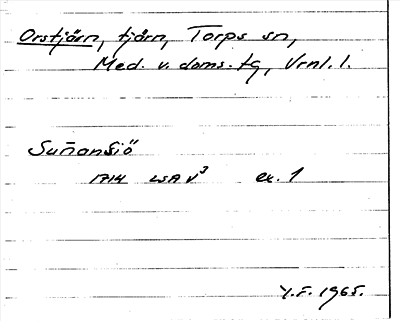 Orstjärn, tjärn, Torps sn,
Med. v. doms. tg, Vrnl. l.
Suñansiö
1714 LSA V³ ex. 1
Y.F. 1965.